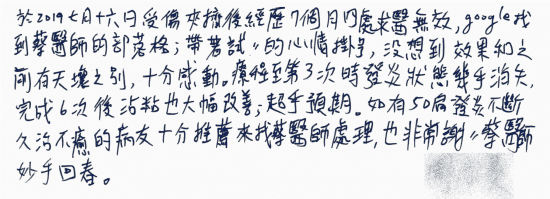 於2019七月十六日受傷來擁後經歷7個月四處求醫無效,google找
到蔡醫師的部落格;帶著試〃的心情掛号,没想到效果和之
前有天壤之別,十分感動。療程至第3次時發炎狀態幾乎消失,
完成6次後沾粘也大幅改善;超乎預期。如有50肩發炎不斷
久治不癒的病友十分推薦來找蔡醫師處理,也非常謝〃蔡醫師
妙手回春。